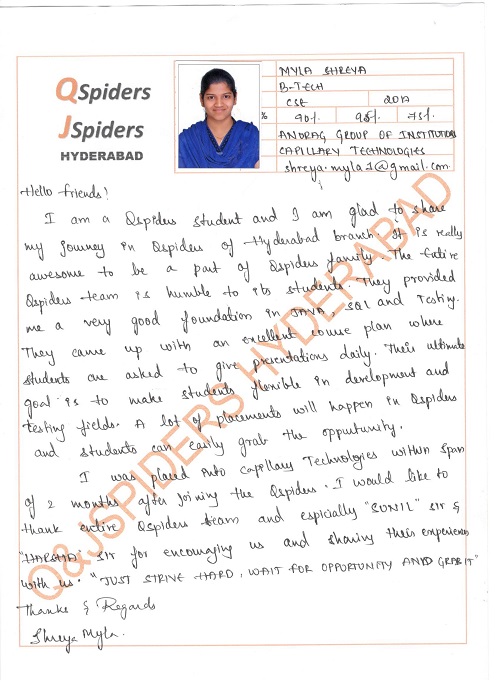 QSpiders
JSpiders
HYDERABAD
MYLA SHREYA
B-TECH
CSE 2017
% 90%. 95%. 75%.
ANURAG GROUP OF INSTITUTIONS
CAPILLARY TECHNOLOGIES
shreya.myla1@gmail.com.
Hello friends!
I am a Qspiders student and I am glad to share
my journey in Qspiders of Hyderabad branch. It is really
awesome to be a part of Qspiders family. The Entire
Qspiders team is humble to its students. They provided
me a very good foundation in JAVA, SQL and Testing.
They came up with an excellent course plan where
students are asked to give presentations daily. Their ultimate
goal is to make students flexible in development and
testing fields. A lot of placements will happen in Qspiders
and students can easily grab the oppurtunity.
I was placed into Capillary Technologies within span
of 2 months after joining the Qspiders. I would like to
thank entire Qspiders team and espicially "SUNIL" sir &
"HARSHA" sir for encouraging us and sharing their experiences
with us. "JUST STRIVE HARD, WAIT FOR OPPORTUNITY AND GRAB IT"
Thanks & Regards
Shreya Myla.
Q&JSPIDERS HYDERABAD